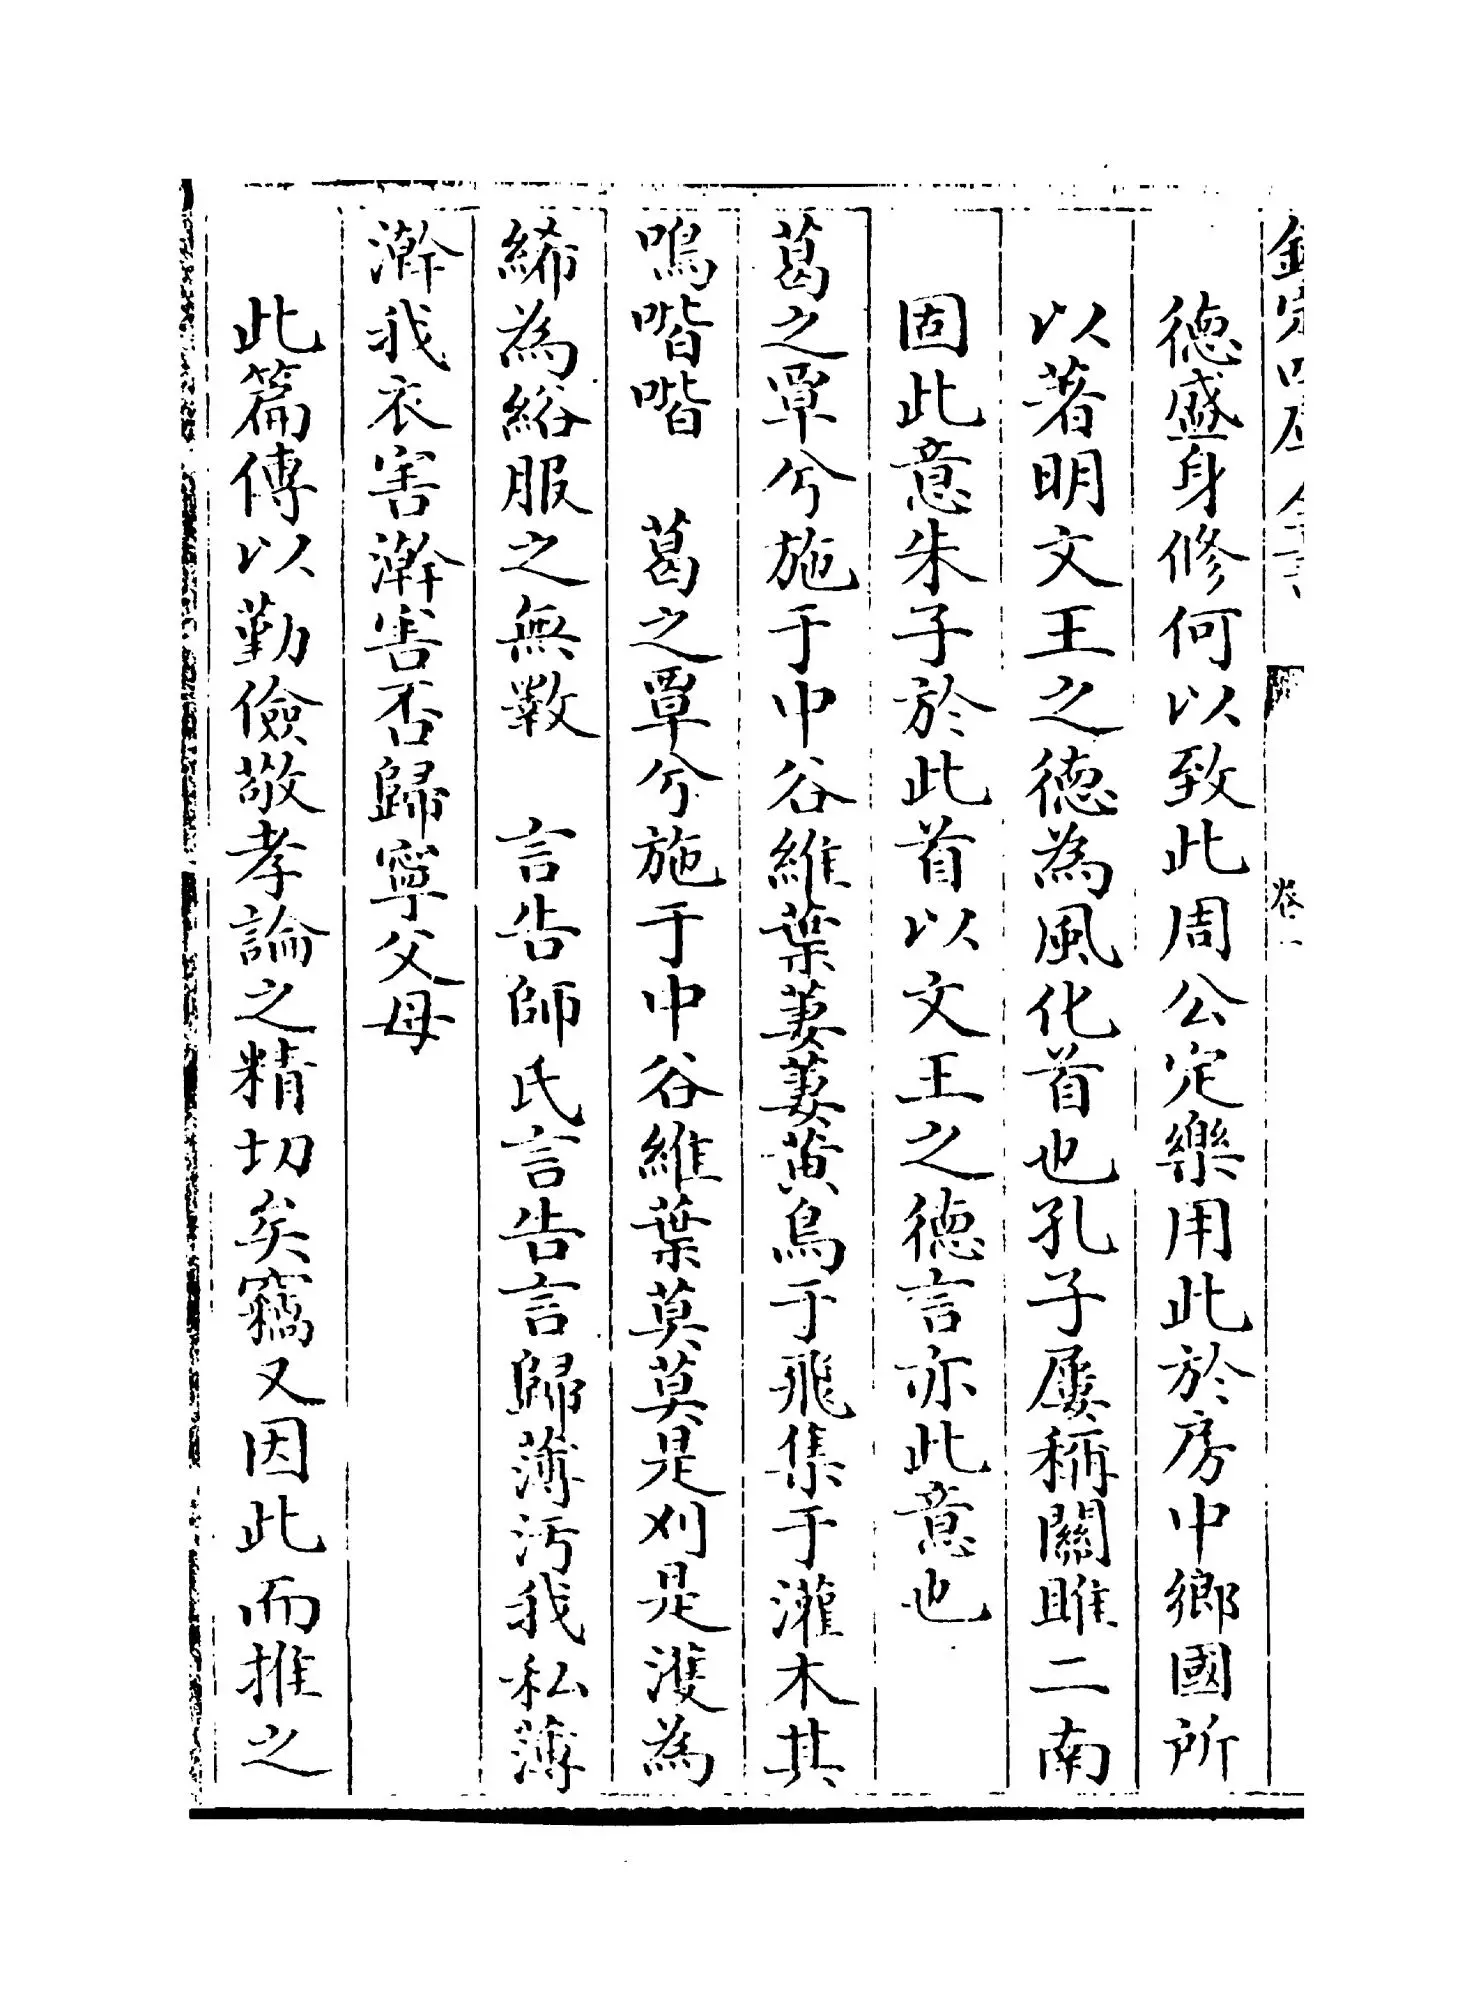 欽定四庫全書 卷一
德盛身修何以致此周公定樂用此於房中鄉國所
以著明文王之德為風化首也孔子屢稱關雎二南
固此意朱子於此首以文王之德言亦此意也
葛之覃兮施于中谷維葉萋萋黄鳥于飛集于灌木其
鳴喈喈　葛之覃兮施于中谷維葉莫莫是刈是濩為
絺為綌服之無斁　言告師氏言告言歸薄汚我私薄
澣我衣害澣害否歸寧父母
此篇傳以勤儉敬孝論之精切矣竊又因此而推之